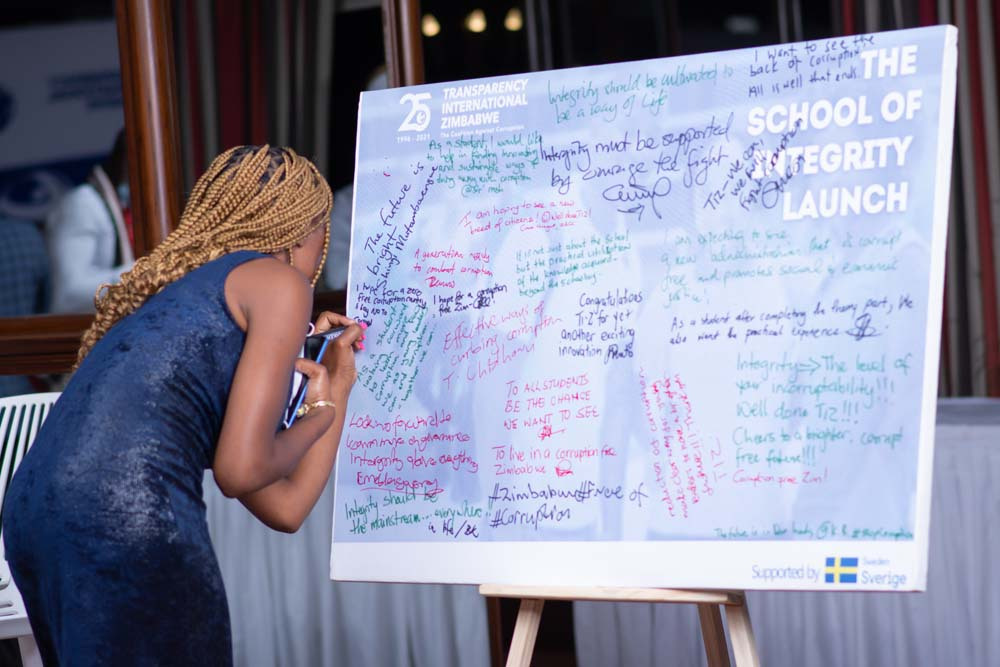 25
1996 - 2021
TRANSPARENCY
INTERNATIONAL
ZIMBABWE
The Coalition Against Corruption
THE
SCHOOL OF
INTEGRITY
LAUNCH
Integrity should be cultivated to
be a way of life
I want to see the
back of corruption
All is well that ends.
As a student, I would like
to help in finding innovative
and sustainable ways of
doing away with corruption
Intergrity must be supported
by Courage to fight
TIZ- We can
The Future is
bright
I am hoping to see a new
breed of citizens! Well done TIZ!
A generation ready
to combat corruption
It is not just about the School
but the practical utilisation
of the knowledge acquired
beyond the schooling
I am expecting to see
a new administration that is corrupt
free and promotes social & economic
justice!
I hope for a zero
I hope for a corruption
free Zim
Congratulations
TIZ for yet
another exciting
innovation
As a student after completing the theory part, We
also want the practical experience
Effective ways of
curbing corruption
T. Chidhawu
Integrity => The level of
your incorruptability!!!
Well done TIZ!!!
Cheers to a brighter, corrupt
free future!!!
Corruption free Zim!
TO ALL STUDENTS
BE THE CHANGE
WE WANT TO SEE
Looking forward to
learn more on governance
Intergrity above everything
To live in a corruption free
Zimbabwe
Integrity should be
the mainstream... everywhere
#Zimbabwe free of
#Corruption
The future is in our hands
Supported by
Sweden
Sverige